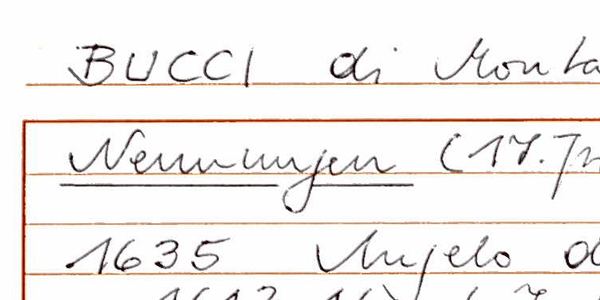 BUCCI di Monta
Nennungen (17. Jh
1635 Angelo d